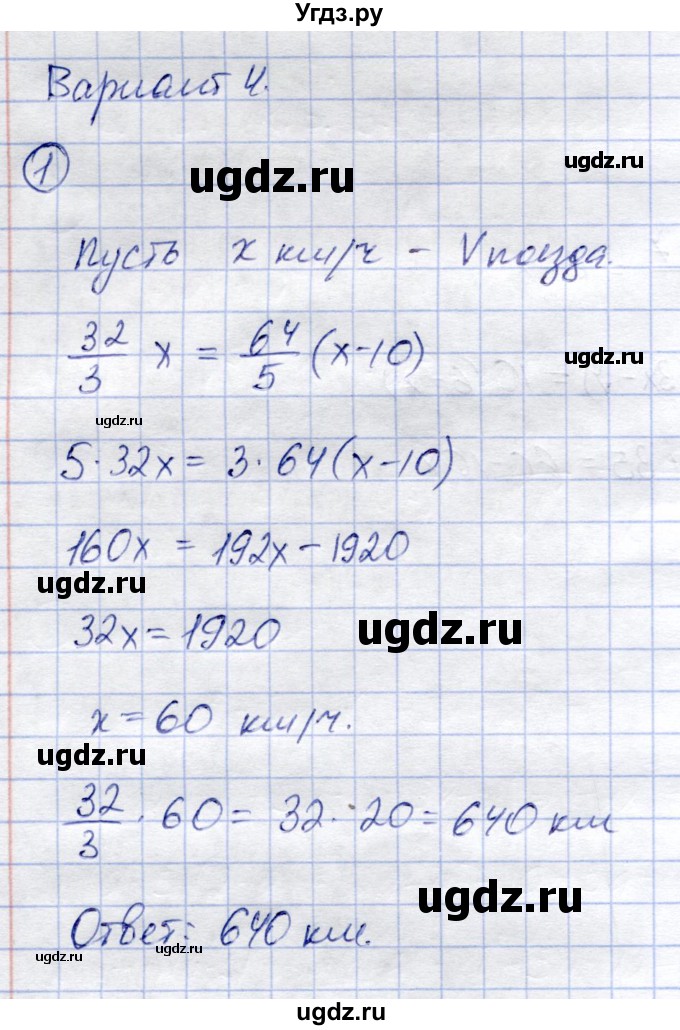 Угдз.ру
Вариант 4.
1
ugdz.ru
ugdz.ru
Пусть x км/ч - V поезда.
32/3 x = 64/5 (x-10)
ugdz.ru
ugdz.ru
5·32x = 3·64(x-10)
160x = 192x - 1920
ugdz.ru
32x = 1920
ugdz.ru
x = 60 км/ч.
ugdz.ru
32/3 · 60 = 32 · 20 = 640 км
ugdz.ru
Ответ: 640 км.
ugdz.ru
ugdz.ru
ugdz.ru